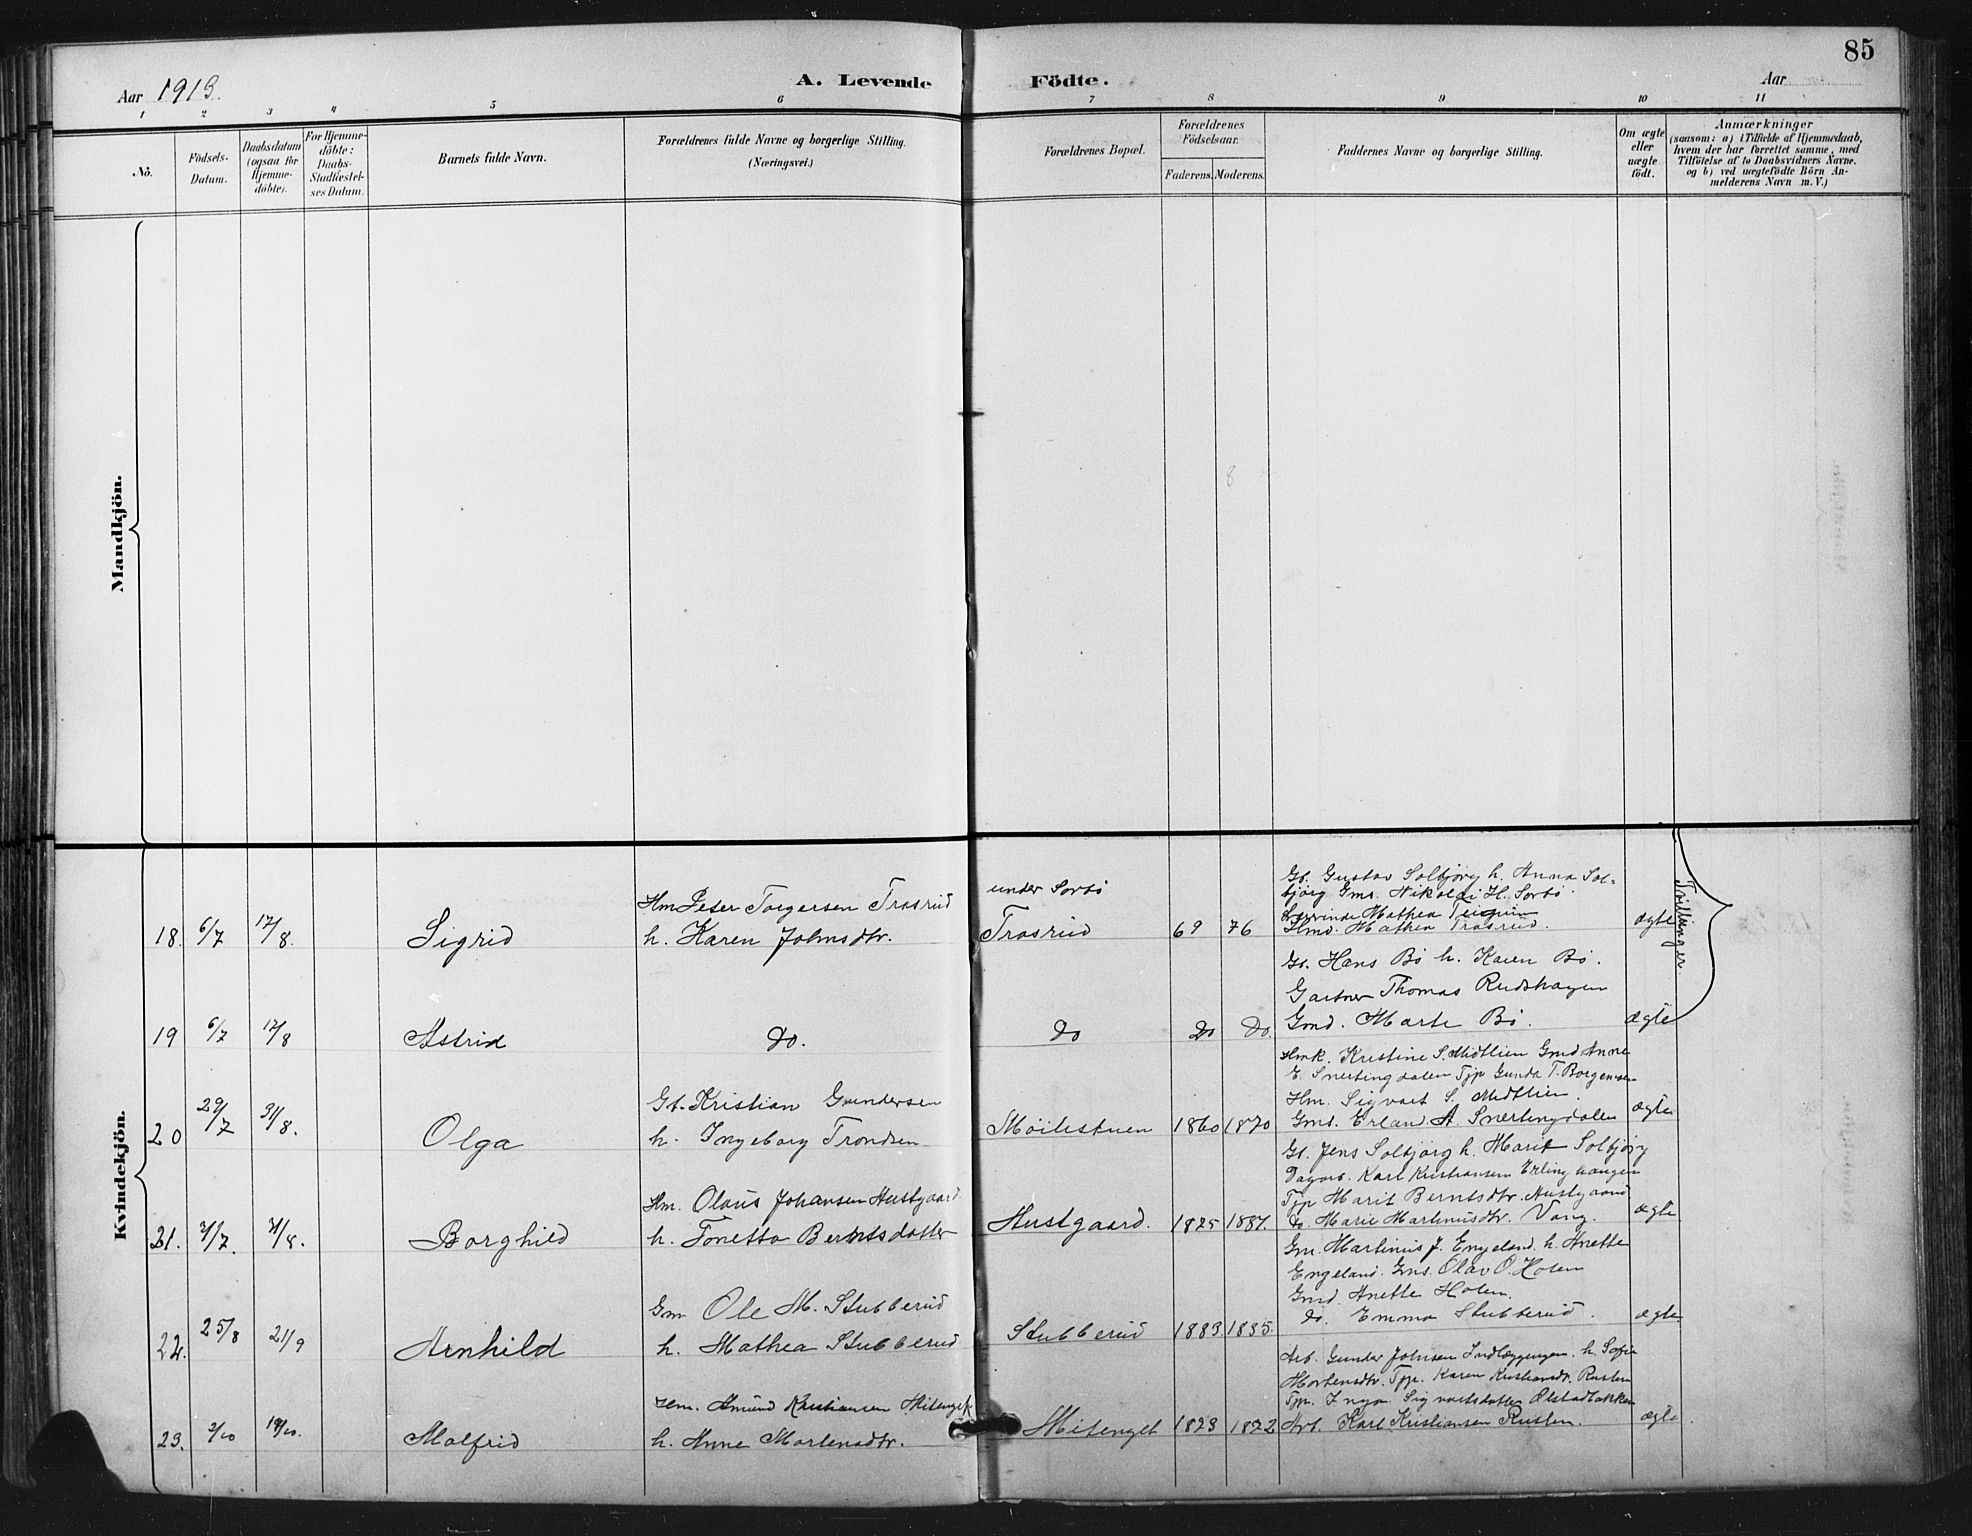 85
Aar 1913
A. Levende
Födte.
Aar
1 2 3 4 5 6 7 8 9 10 11
No.
Födsels-
Datum.
Daabsdatum
(ogsaa for
Hjemme-
döbte).
For Hjemme-
döbte:
Daabs-
Stadfæstel-
ses Datum.
Barnets fulde Navn.
Forældrenes fulde Navne og borgerlige Stilling.
(Næringsvei.)
Forældrenes Bopæl.
Forældrenes
Födselsaar.
Faderens. Moderens.
Faddernes Navne og borgerlige Stilling.
Om ægte
eller
uægte
födt.
Anmærkninger
(saasom: a) i Tilfælde af Hjemmedaab,
hvem der har forrettet samme, med
Tilföielse af to Daabsvidners Navne.
og b) ved uægtefödte Börn An-
melderens Navn m. V.)
Mandkjön.
Kvindekjön.
18. 6/7 17/8. Sigrid
Hm Peter Torgersen Trasrud
h. Karen Johnsdtr.
under Sorbö
Trasrud 69 76
Gb. Gustav Solbjörg h. Anna Sol-
björg Gms. Nikolai H. Sorbö
Mathea
Hmd. Mathea Trasrud.
ægte
Tvillinger
19 6/7 17/8 Astrid
Do.
Do Do Do.
Gb. Hans Bö h. Karen Bö.
Gartner Thomas Rudshagen
Gmd. Marte Bö.
ægte
20 29/7 31/8. Olga
Gb. Kristian Gundersen
h. Ingeborg Trondsen
Möilistuen 1860 1870
Hmk. Kristine S. Midtlien Gmd Anne
E. Snertingdalen Tjp Gunda T. Borgensen
Hm. Sigvart S. Midtlien.
Gms. Erlan A. Snertingdalen
ægte
21. 31/7. 31/8. Borghild
Hm. Olaus Johansen Hustgaard
h. Tonetta Berntsdatter
Hustgaard. 1875 1887.
Gb. Jens Solbjörg h. Marit Solbjörg
Dagarb. Karl Kristiansen Erlinghaugen
Tjp Marit Berntsdtr. Hustgaard
Do. Marie Martinusdtr. Vang.
ægte
22. 25/8 21/9 Arnhild
Gm Ole M. Stubberud
h. Mathea Stubberud
Stubberud 1883. 1885.
Gm. Martinius J. Engeland. h. Anette
Engeland. Gms. Olav O. Holen
Gmd. Anette Holen.
Do. Emma Stubberud.
ægte
23. 2/10 19/10. Malfrid
Hm. Amund Kristiansen Mitenget
h. Anne Martensdtr.
Mitenget 1873 1872
Arb. Gunder Johnsen Indlæggengen. h. Sofie
Mortensdtr. Tjp. Karen Kristiansdt. Rusten
Tjp. Inga Sigvartsdatter Ölstadbakken
Arb. Karl Kristiansen Rusten.
ægte